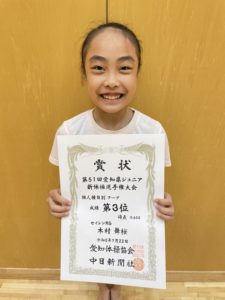 賞状
第51回愛知県ジュニア
新体操選手権大会
個人種目別 フープ
成績 第3位
得点
木村 舞桜
愛知体操協会
中日新聞社